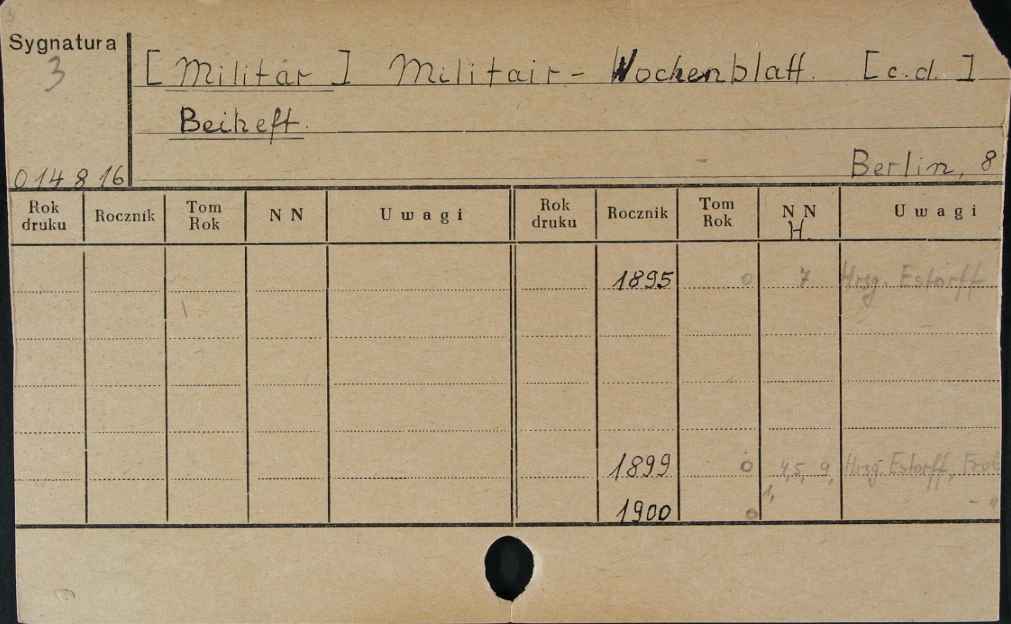 Sygnatura
3
[Militär] Militair-Wochenblatt. [c.d.]
Beiheft.
014816
Berlin, 8
Rok druku Rocznik Tom Rok N N Uwagi Rok druku Rocznik Tom Rok N N Uwagi
H
1895 0 7 Hrsg. Estorff
1899 0 4,5, 9, Hrsg. Estorff,
1,
1900 0